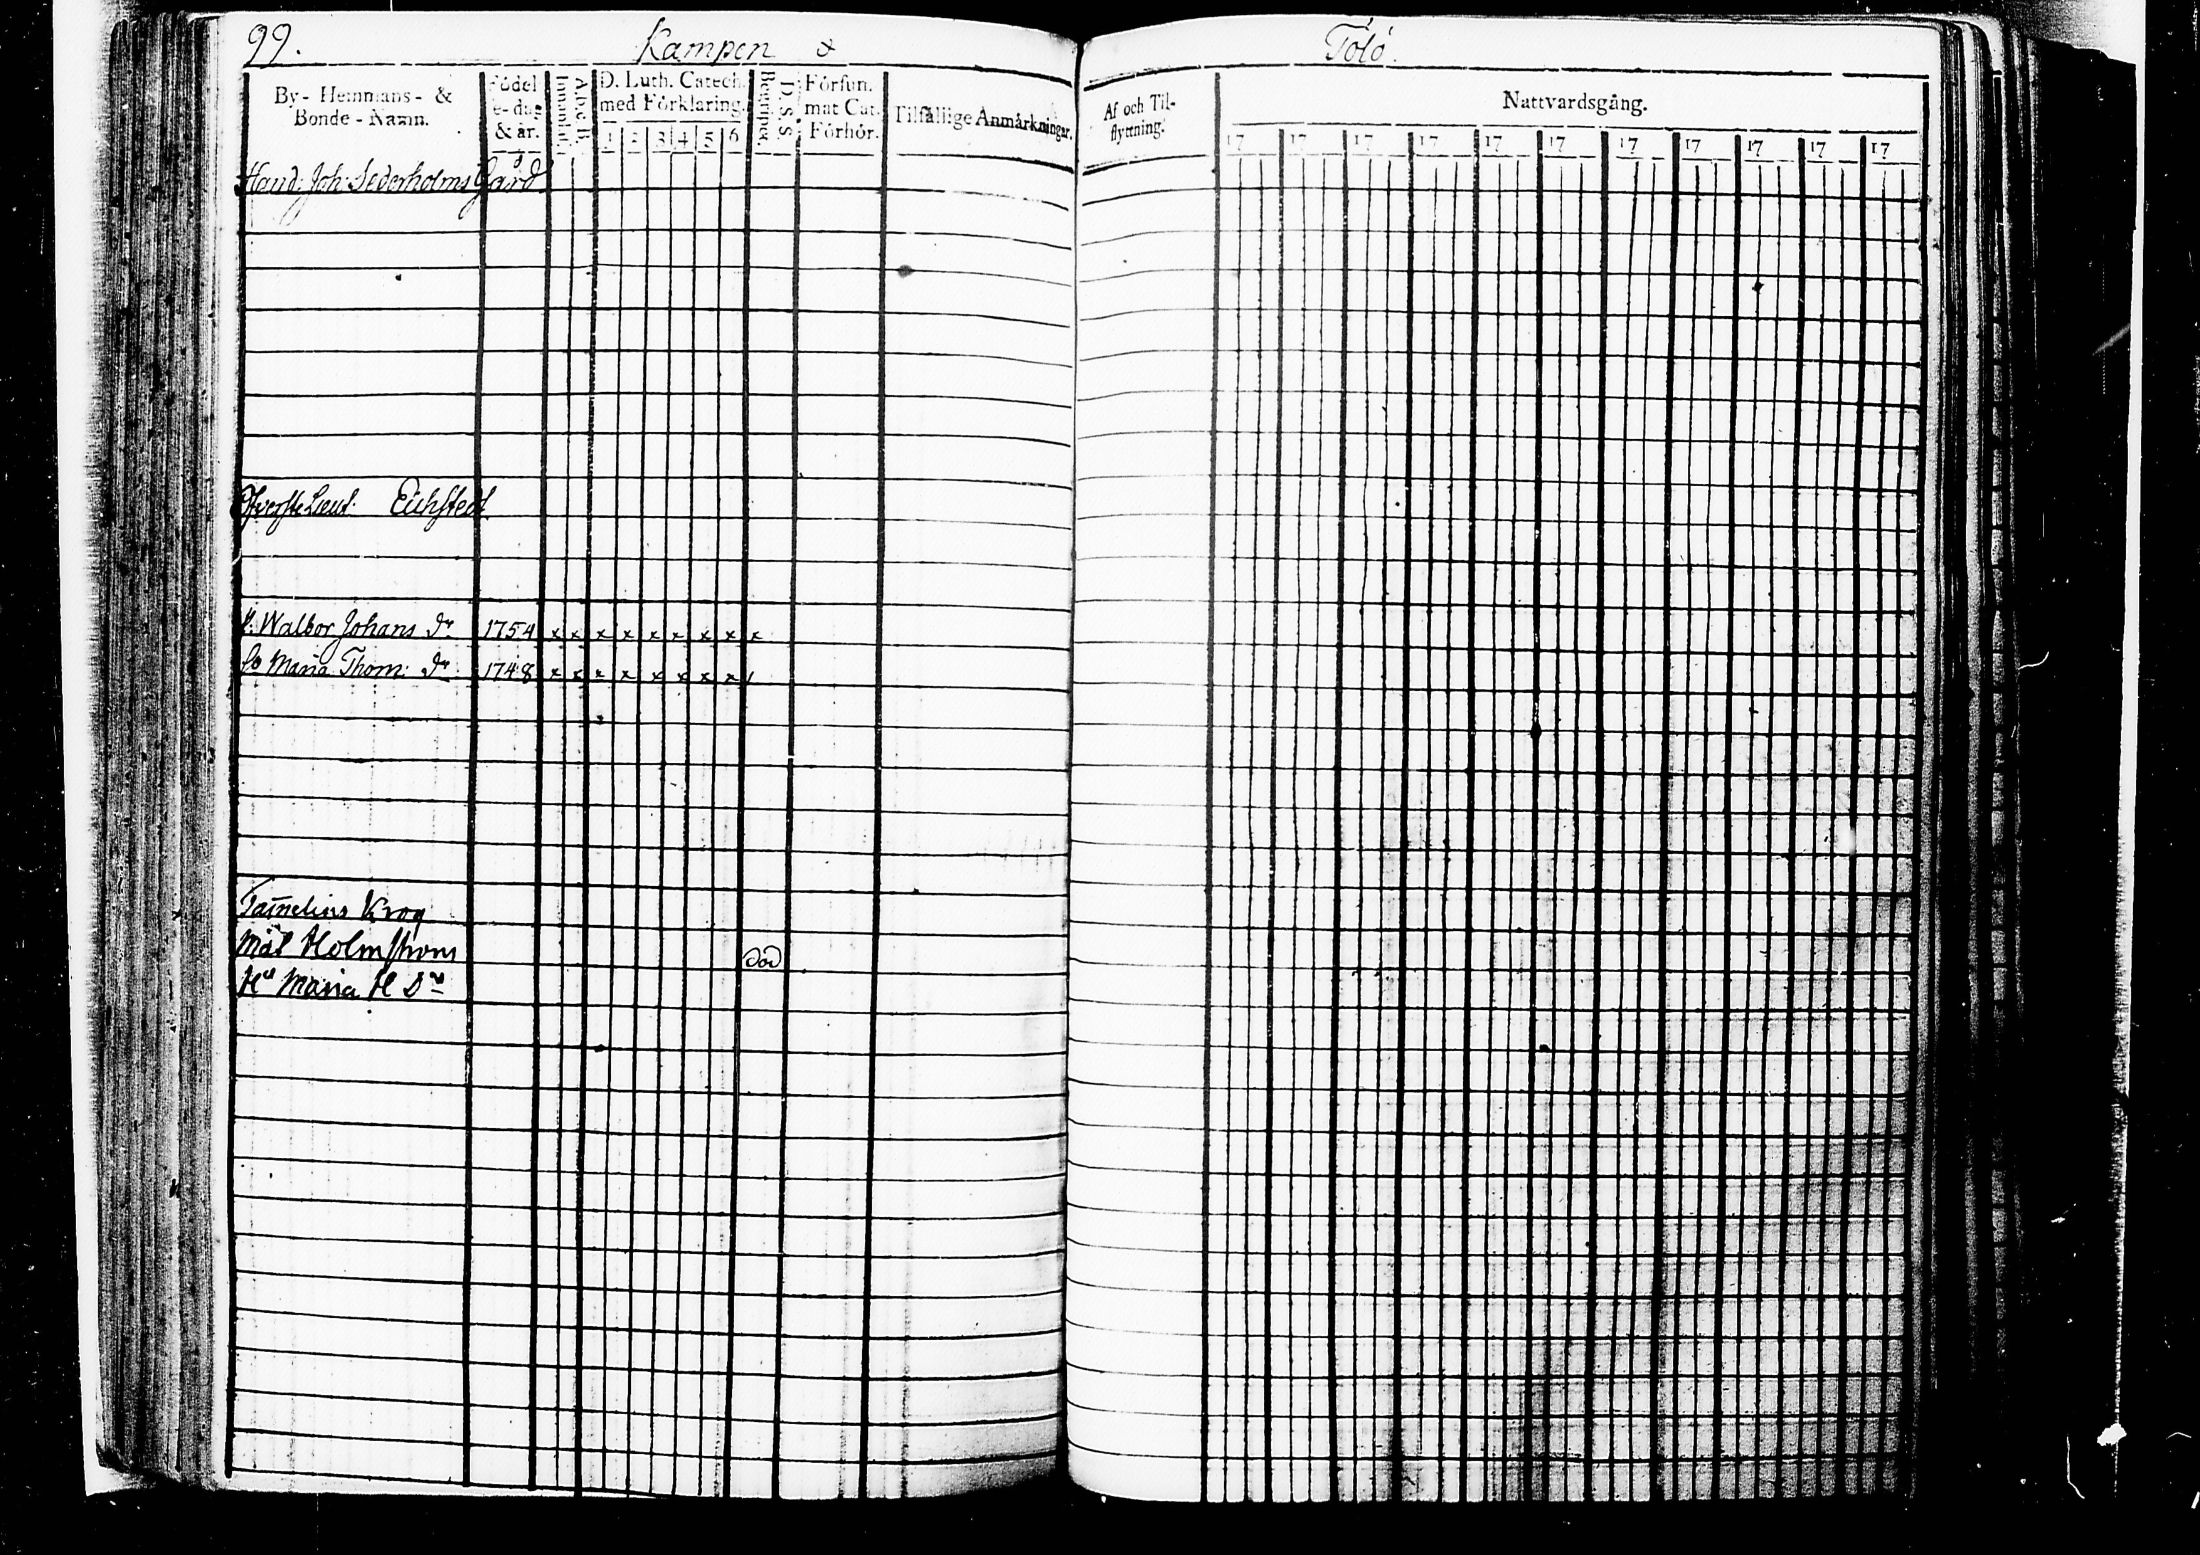 99. Kampen & Tölö.
By- Hemmans- & Bonde-Namn.
Födelse-dag & år.
Innantil.
A.b.c. B.
D. Luth. Catech. med Förklaring.
1 2 3 4 5 6
Begreppet.
D. S. S.
Försum. mat Cat. Förhör.
Tilfällige Anmärkningar.
Af och Til-flyttning.
Nattvardsgång.
17 17 17 17 17 17 17 17 17 17 17
Hand. Joh. Sederholms Gård
Öfverste Lieut. Eichstedt
P. Walbor Johans dr 1754 x x x x x x x x x
Maria Thom. dr 1748 x x x x x x x x
Krog
Mat Holmstrom död
Hu Maria H Dr